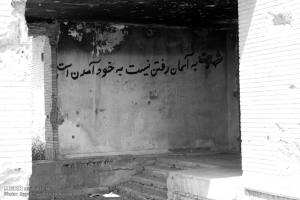 شهادت به آسمان رفتن نیست به خود آمدن است